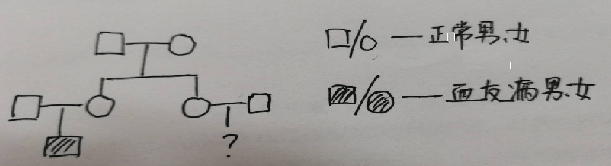 □/○ — 正常男、女
▨/◍ — 血友病男、女
?